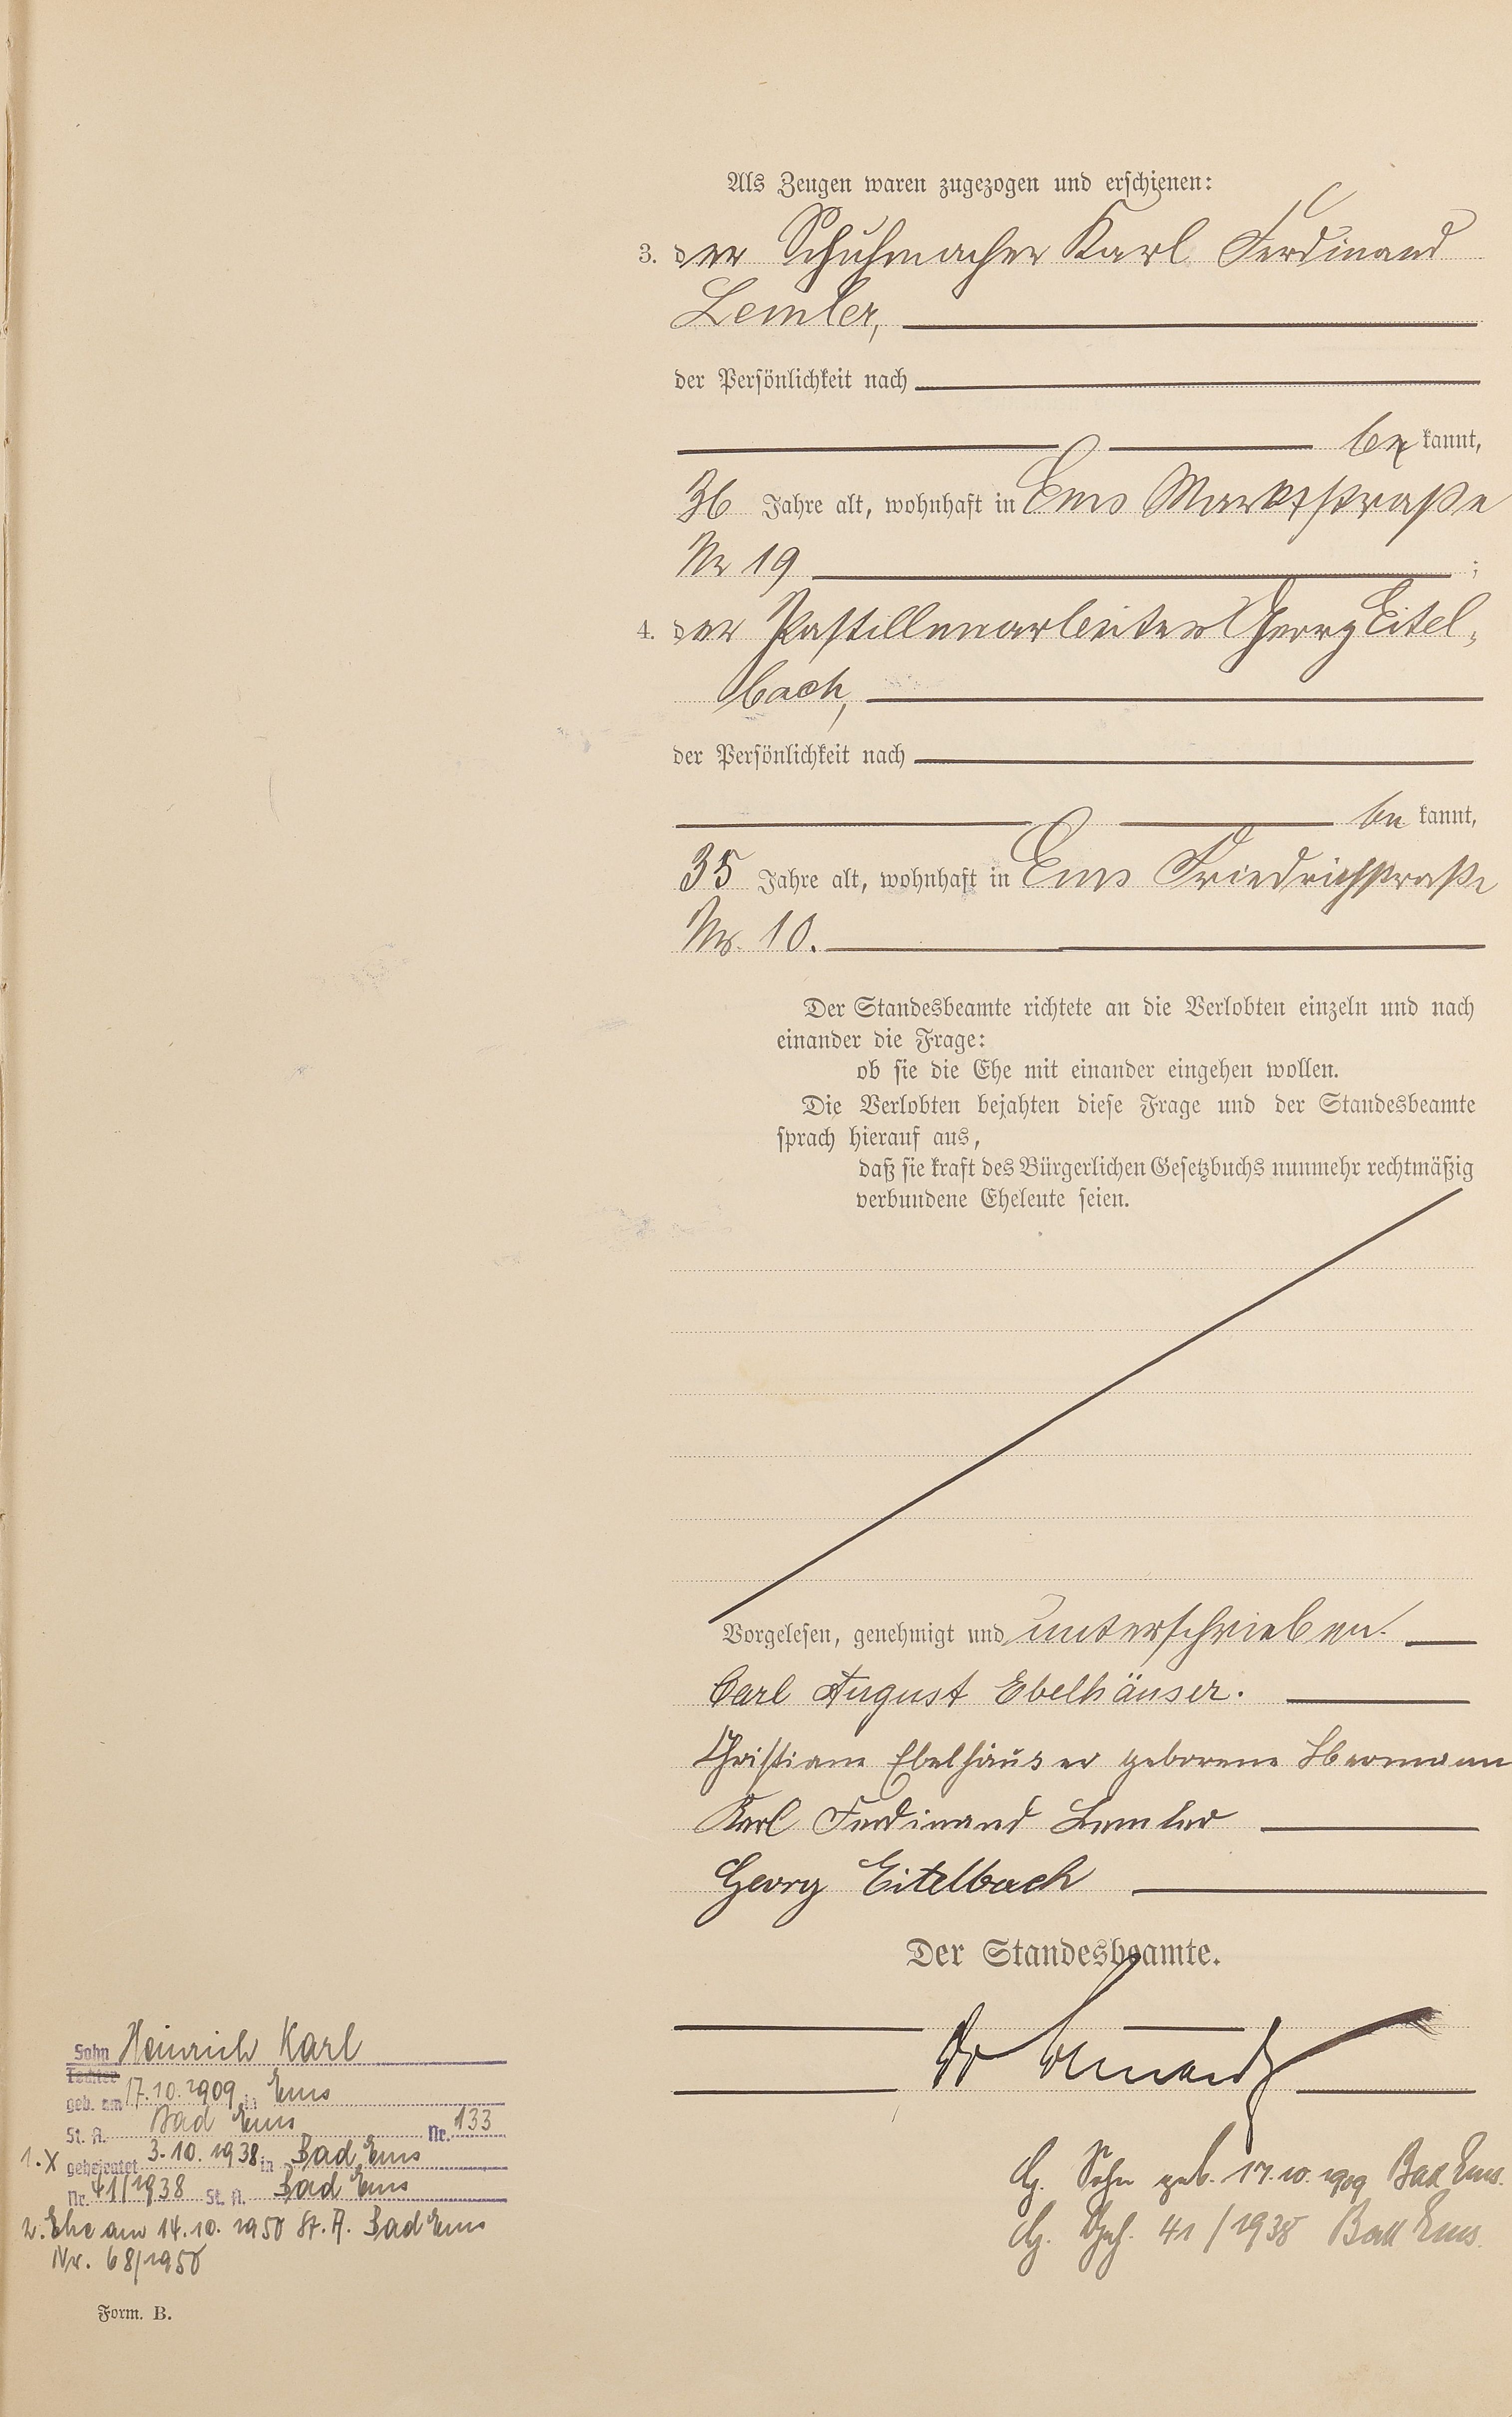 Als Zeugen waren zugezogen und erschienen:
3. der Schuhmacher Karl Ferdinand
Lemler,
der Persönlichkeit nach
be kannt,
36 Jahre alt, wohnhaft in Ems Marktstraße
Nr 19 ;
4. der Pastillenarbeiter Georg Eitel-
bach,
der Persönlichkeit nach
be kannt,
35 Jahre alt, wohnhaft in Ems Friedrichstraße
Nr. 10.
Der Standesbeamte richtete an die Verlobten einzeln und nach
einander die Frage:
ob sie die Ehe mit einander eingehen wollen.
Die Verlobten bejahten diese Frage und der Standesbeamte
sprach hierauf aus,
daß sie kraft des Bürgerlichen Gesetzbuchs nunmehr rechtmäßig
verbundene Eheleute seien.
Vorgelesen, genehmigt und unterschrieben.
Carl August Ebelhäuser.
Christiane Ebelhäuser geborene
Karl Ferdinand Lemler
Georg Eitelbach
Der Standesbeamte.
Dr
Sohn Heinrich Karl
Tochter
geb. am 17.10.1909 in Ems
St. A. Bad Ems Nr. 133
1. X geheiratet 3.10.1938 in Bad Ems
Nr. 41/1938 St. A. Bad Ems
2. Ehe am 14.10.1950 St. A. Bad Ems
Nr. 68/1950
Sohn geb. 17.10.1909 Bad Ems.
41/1938 Bad Ems.
Form. B.